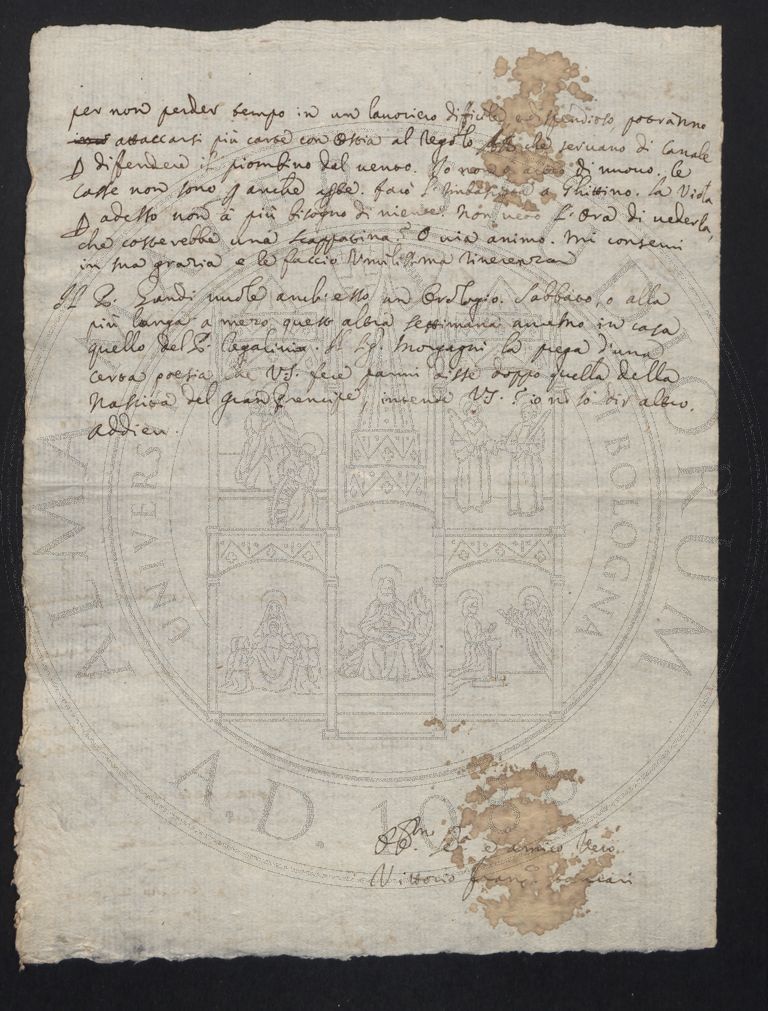 per non perder tempo in un lavoriero difficile e dispendioso, potranno
attaccarsi più carte con Ostia al Regolo che servano di Canale
p difendere il piombino dal vento. Io non ò altro di nuovo, le
Casse non sono p anche Farò l'imbasciata a Ghittino. la Viola
p adesso non à più bisogno di niente. Non vedo l'Ora di vederla,
che costerebbe una scappatina? O via animo. Mi conservi
in sua grazia e le faccio Umilissima Riverenza
Il P. Grandi vuole anch'esso un Orologio. Sabbato, o alla
più longa a mezo quest'altra settimana avremo in casa
quello del Morgagni la prega d'una
certa poesia che VS. fece fatta doppo quella della
Nascita del gran Prencipe, intende VS.? io nō sò dir altro.
Addieu.
e amico Vero
Vittorio Franc.o Stancari
ALMA MATER STUDIORUM
UNIVERSITÀ DI BOLOGNA
A.D. 1088